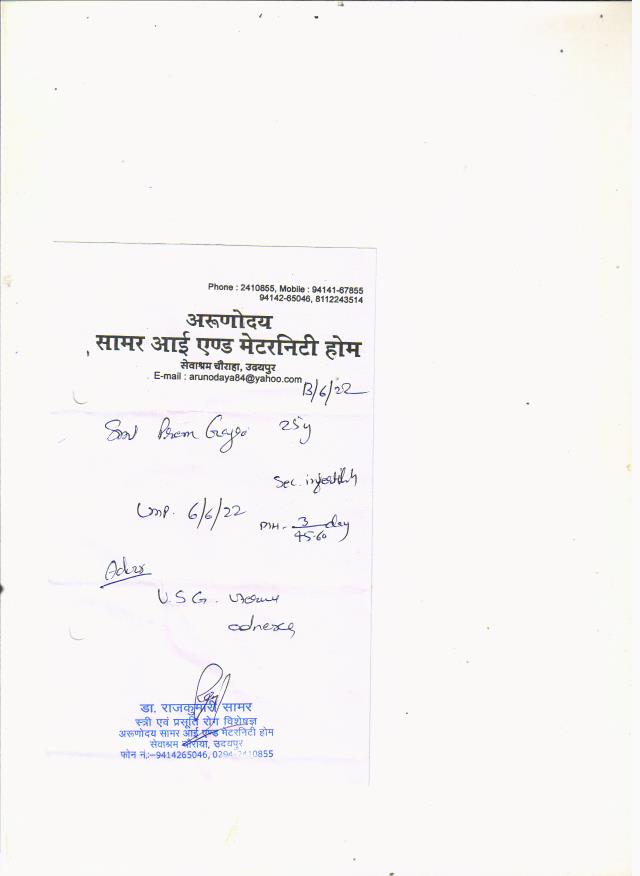 Phone : 2410855, Mobile : 94141-67855
94142-65046, 8112243514
अरूणोदय
सामर आई एण्ड मेटरनिटी होम
सेवाश्रम चौराहा, उदयपुर
E-mail : arunodaya84@yahoo.com
13/6/22
Prem 25y
Sec.
LMP. 6/6/22
MH- 3 day
45-60
U.S.G.
डा. राजकुमारी सामर
स्त्री एवं प्रसूति रोग विशेषज्ञ
अरूणोदय सामर आई एण्ड मेटरनिटी होम
सेवाश्रम चौराया, उदयपुर
फोन नं.:-9414265046, 0294-2410855